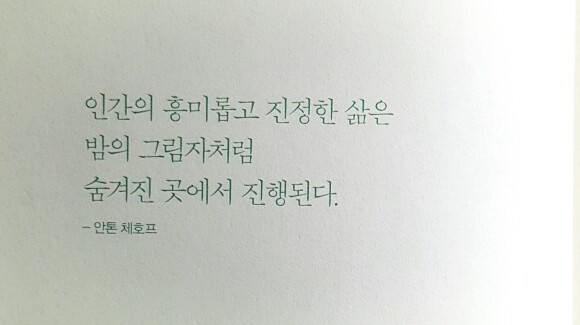 인간의 흥미롭고 진정한 삶은
밤의 그림자처럼
숨겨진 곳에서 진행된다.
– 안톤 체호프